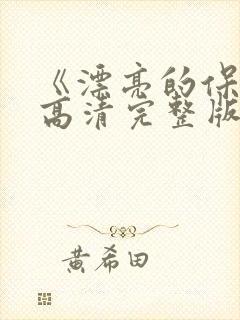 《漂亮的保
高清完整版
黄希田